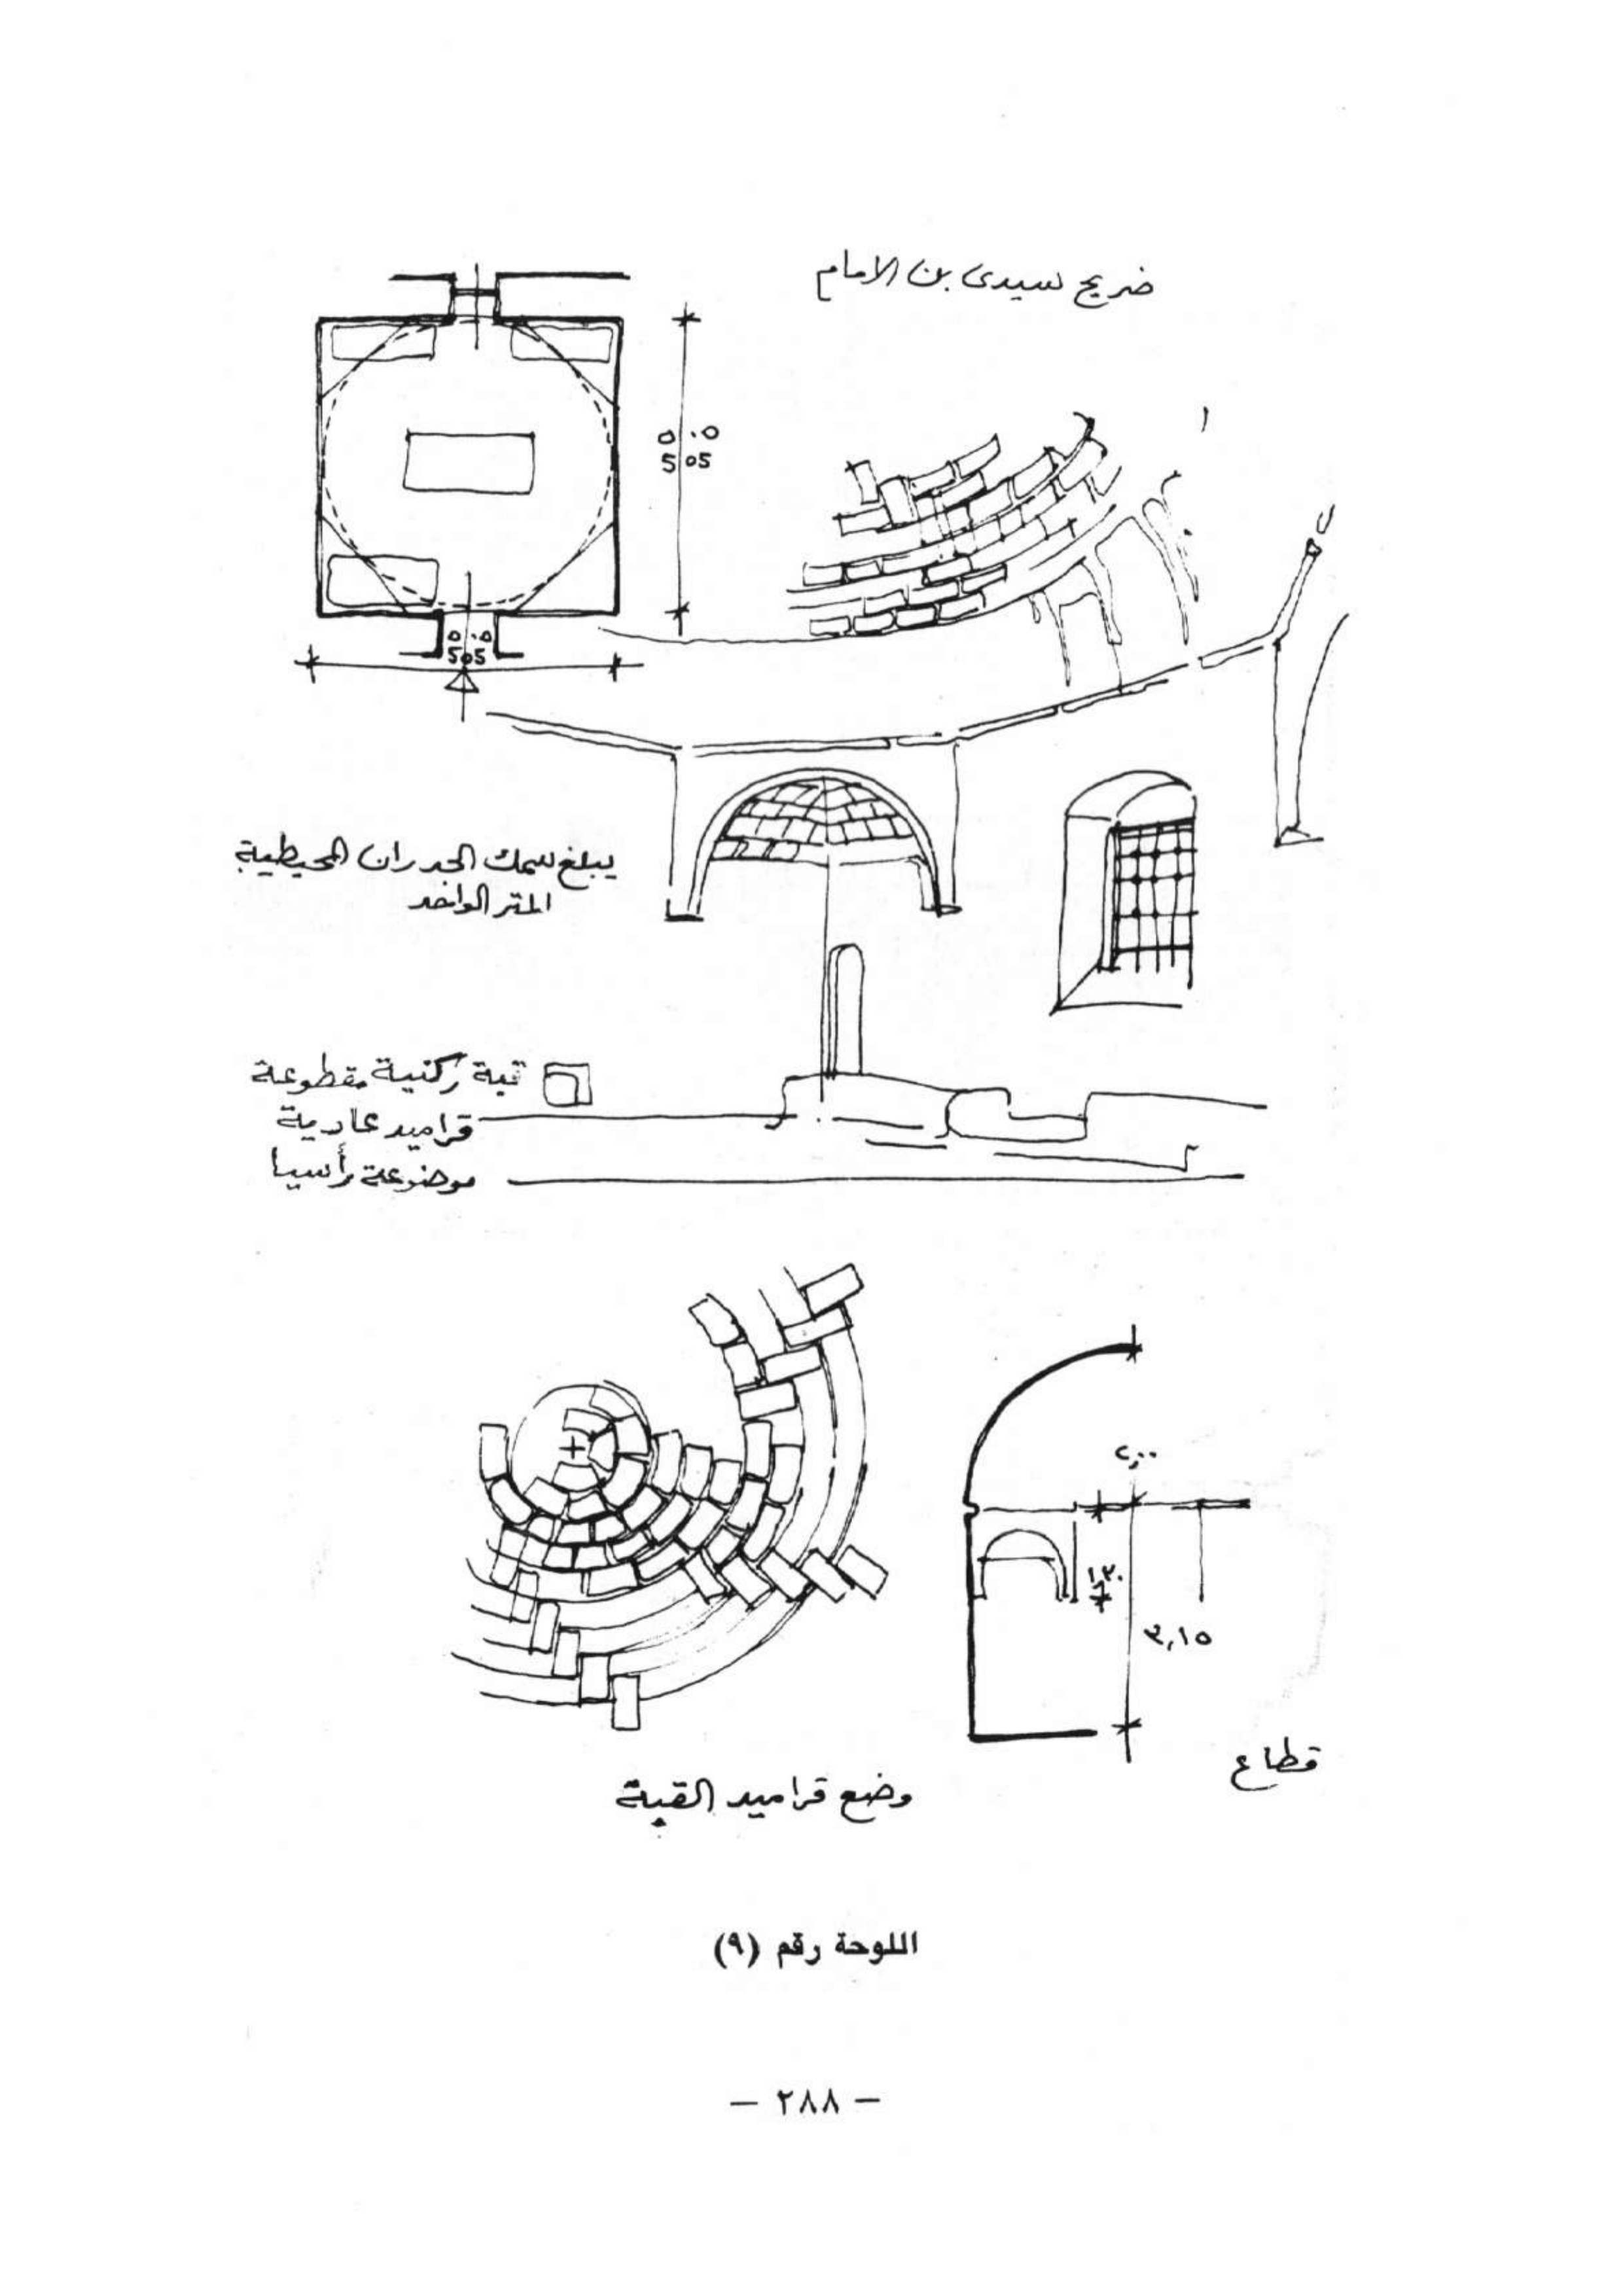 ضريح سيدى بن الامام
٥٠٥
505
٥٠٥
505
يبلغ سمك الجدران المحيطية
المتر الواحد
قبة ركنية مقطوعة
قراميد عادية
موضوعة رأسيا
٢,٠٠
١,٢٠
٣,١٥
قطاع
وضع قراميد القبة
اللوحة رقم (٩)
— ٢٨٨ —